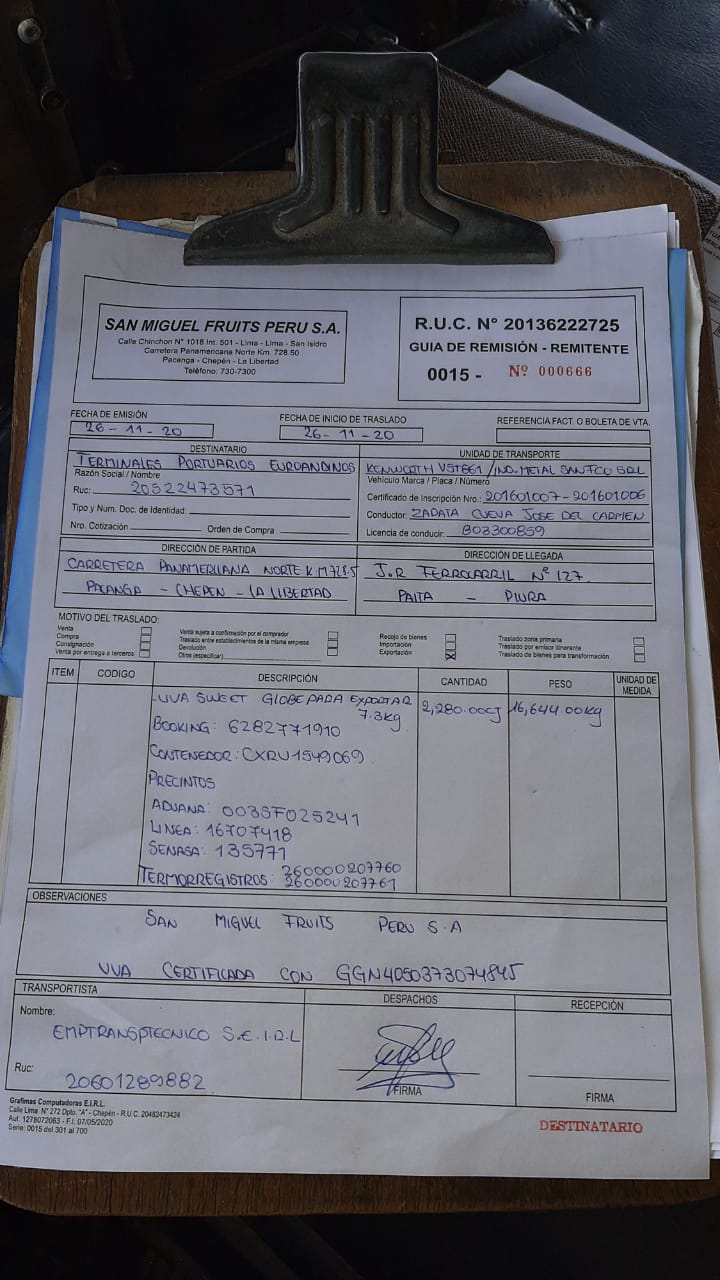 SAN MIGUEL FRUITS PERU S.A.
Calle Chinchon N° 1018 Int. 501 - Lima - Lima - San Isidro
Carretera Panamericana Norte Km. 728.50
Pacanga - Chepén - La Libertad
Teléfono: 730-7300
R.U.C. N° 20136222725
GUIA DE REMISIÓN - REMITENTE
0015 - Nº 000666
FECHA DE EMISIÓN
26-11-20
FECHA DE INICIO DE TRASLADO
26-11-20
REFERENCIA FACT. O BOLETA DE VTA.
DESTINATARIO
TERMINALES PORTUARIOS EUROANDINOS
Razón Social / Nombre
Ruc: 20522473571
Tipo y Num. Doc. de Identidad:
Nro. Cotización Orden de Compra
UNIDAD DE TRANSPORTE
KENWORTH V5T861 / IND. METAL SANTCO SRL
Vehículo Marca / Placa / Número
Certificado de Inscripción Nro.: 201601007-201601006
Conductor: ZAPATA CUEVA JOSE DEL CARMEN
Licencia de conducir: B03300859
DIRECCIÓN DE PARTIDA
CARRETERA PANAMERICANA NORTE KM 728.5
PACANGA - CHEPEN - LA LIBERTAD
DIRECCIÓN DE LLEGADA
J.R FERROCARRIL Nº 127.
PAITA - PIURA
MOTIVO DEL TRASLADO:
Venta
Compra
Consignación
Venta por entrega a terceros
Venta sujeta a confirmación por el comprador
Traslado entre establecimientos de la misma empresa
Devolución
Otros (especificar)
Recojo de bienes
Importación
Exportación X
Traslado zona primaria
Traslado por emisor itinerante
Traslado de bienes para transformación
ITEM CODIGO DESCRIPCIÓN CANTIDAD PESO UNIDAD DE MEDIDA
.UVA SWEET GLOBE PARA EXPORTAR 2,280.00CJ 16,644.00kg
7.3kg
BOOKING: 6282771910
CONTENEDOR: CXRU1549069
PRECINTOS
ADUANA: 0035F025241
LINEA: 16707418
SENASA: 135771
TERMORREGISTROS: 260000207760
260000207761
OBSERVACIONES
SAN MIGUEL FRUITS PERU S.A
UVA CERTIFICADA CON GGN4050373074845
TRANSPORTISTA
Nombre:
EMPTRANSPTECNICO S.E.I.R.L
Ruc: 20601289882
DESPACHOS
FIRMA
RECEPCIÓN
FIRMA
Grafimas Computadoras E.I.R.L.
Calle Lima N° 272 Dpto. "A" - Chepén - R.U.C. 20482473424
Aut. 1278072063 - F.I. 07/05/2020
Serie: 0015 del 301 al 700
DESTINATARIO